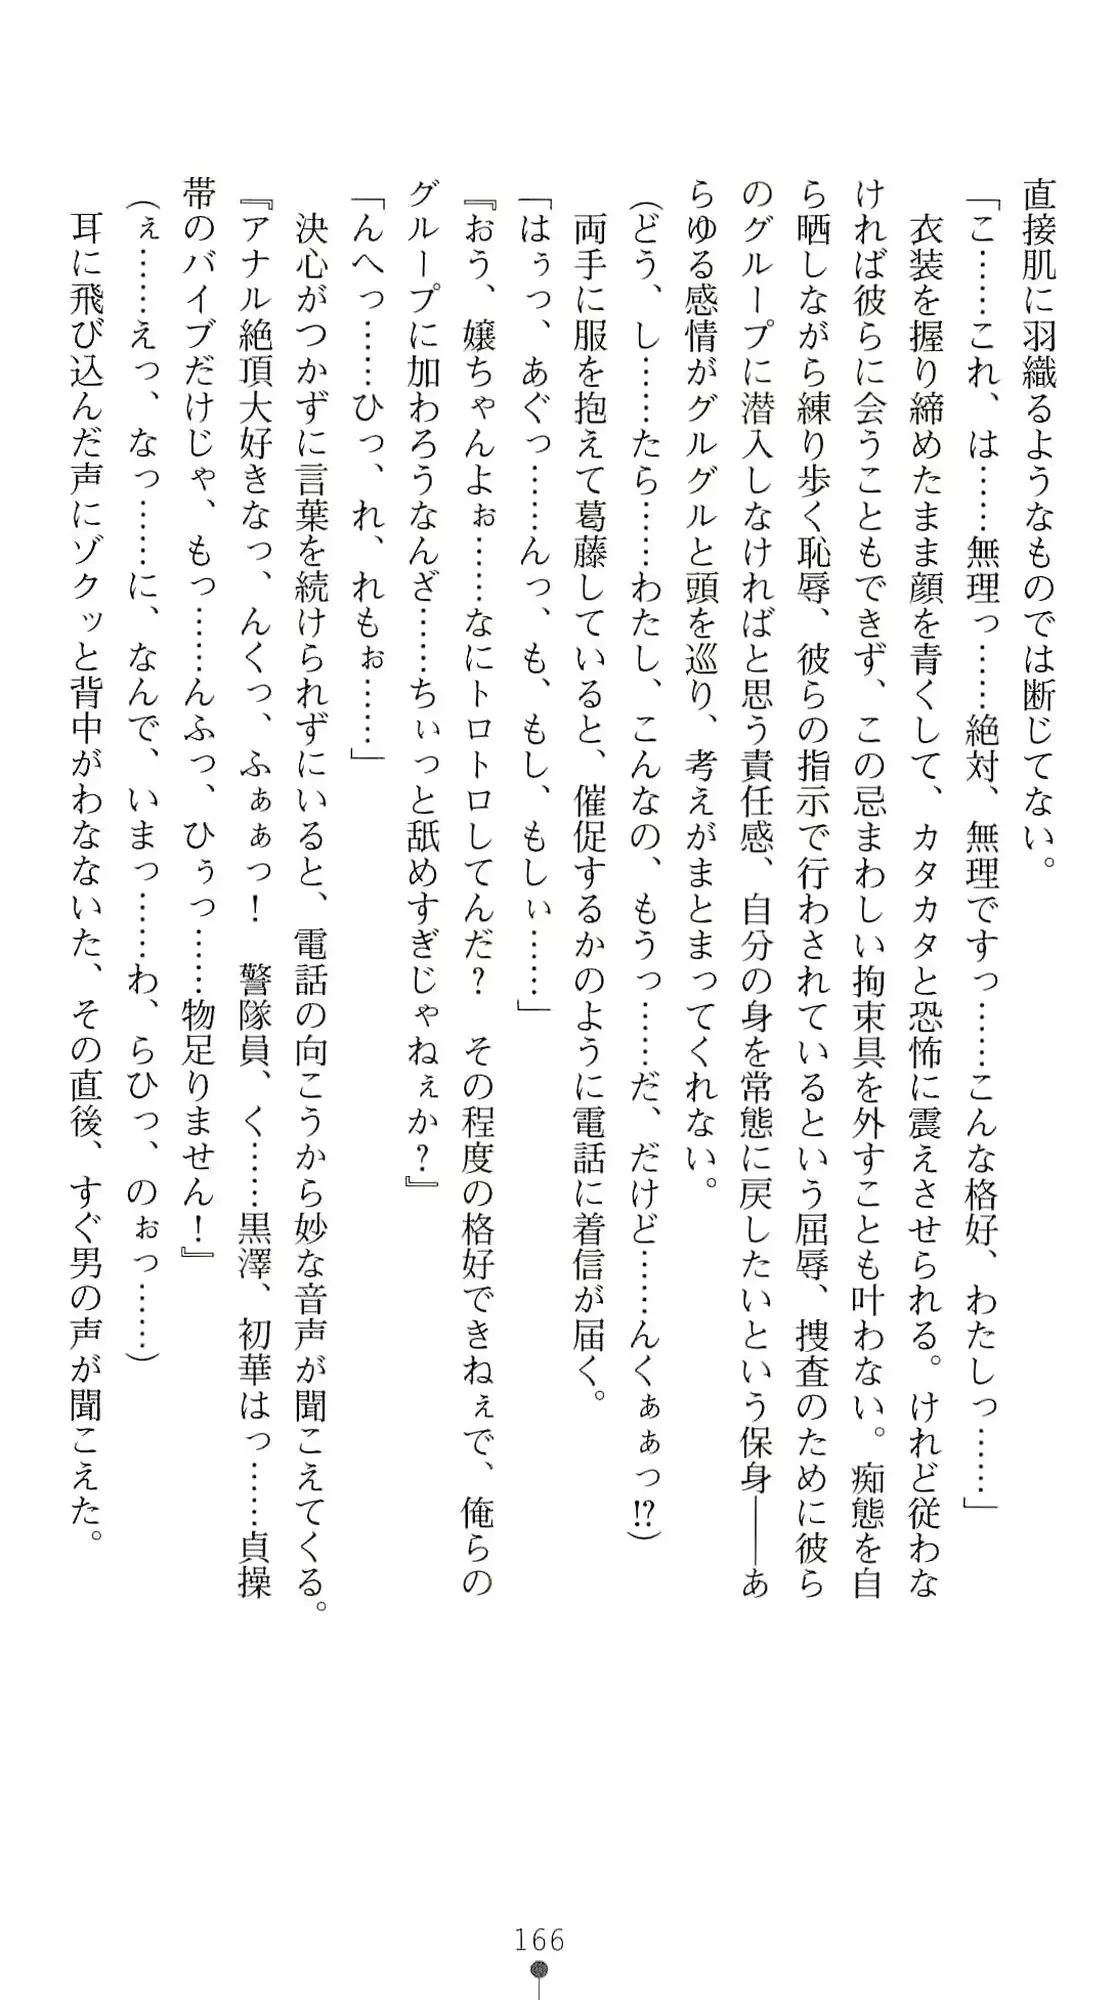 直接肌に羽織るようなものでは断じてない。
「こ……これ、は……無理っ……絶対、無理ですっ……こんな格好、わたしっ……」
衣装を握り締めたまま顔を青くして、カタカタと恐怖に震えさせられる。けれど従わな
ければ彼らに会うこともできず、この忌まわしい拘束具を外すことも叶わない。痴態を自
ら晒しながら練り歩く恥辱、彼らの指示で行わされているという屈辱、捜査のために彼ら
のグループに潜入しなければと思う責任感、自分の身を常態に戻したいという保身――あ
らゆる感情がグルグルと頭を巡り、考えがまとまってくれない。
（どう、し……たら……わたし、こんなの、もうっ……だ、だけど……んくぁぁっ!?）
両手に服を抱えて葛藤していると、催促するかのように電話に着信が届く。
「はぅっ、あぐっ……んっ、も、もし、もしぃ……」
『おう、嬢ちゃんよぉ……なにトロトロしてんだ？　その程度の格好できねぇで、俺らの
グループに加わろうなんざ……ちぃっと舐めすぎじゃねぇか？』
「んへっ……ひっ、れ、れもぉ……」
決心がつかずに言葉を続けられずにいると、電話の向こうから妙な音声が聞こえてくる。
『アナル絶頂大好きなっ、んくっ、ふぁぁっ！　警隊員、く……黒澤、初華はっ……貞操
帯のバイブだけじゃ、もっ……んふっ、ひぅっ……物足りません！』
（ぇ……えっ、なっ……に、なんで、いまっ……わ、らひっ、のぉっ……）
耳に飛び込んだ声にゾクッと背中がわなないた、その直後、すぐ男の声が聞こえた。
166